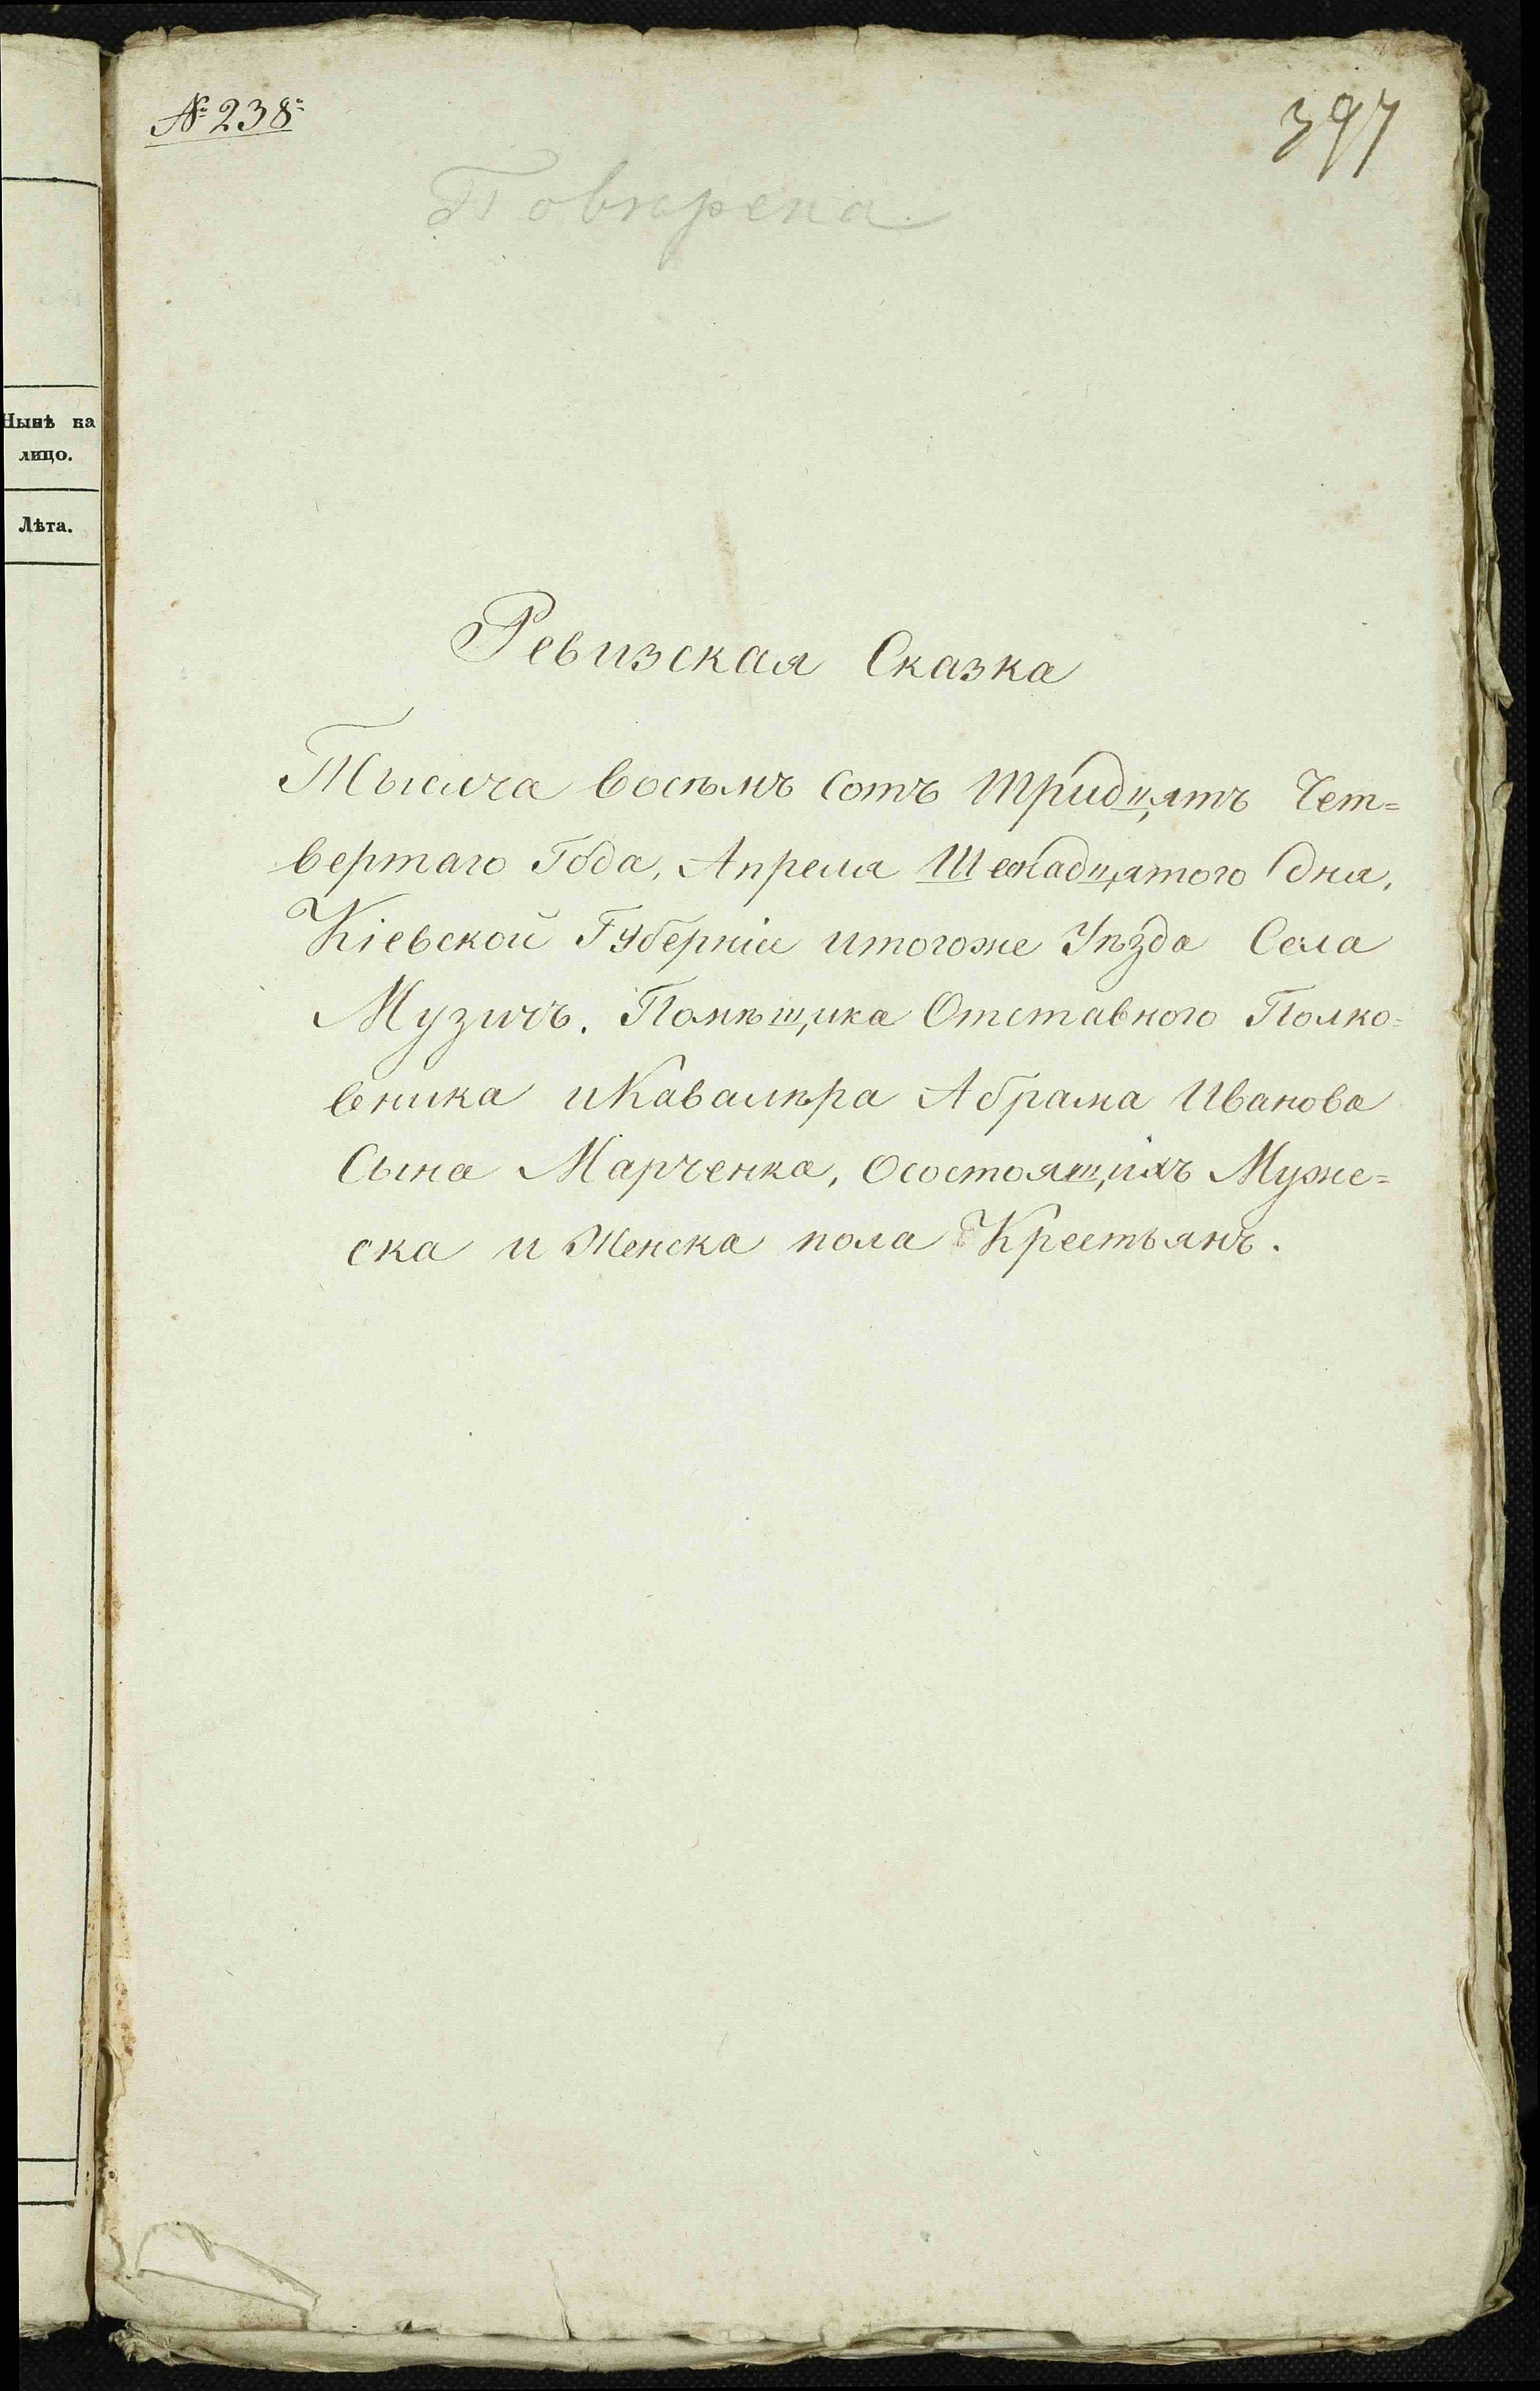 Нынѣ на
лицо.
Лѣта.
№ 238
397
Повѣрена
Ревизская Сказка
Тысяча восѣмъ сотъ тридцятъ Чет=
вертаго Года, Апреля Шеснадцятого дня,
Кіевской Губерніи итогоже Уѣзда Села
Музичъ. Помѣщика Отставного Полко=
вника иКавалѣра Абрама Иванова
Сына Марченка, Осостоящихъ Муже=
ска и Женска пола Крестьянъ.